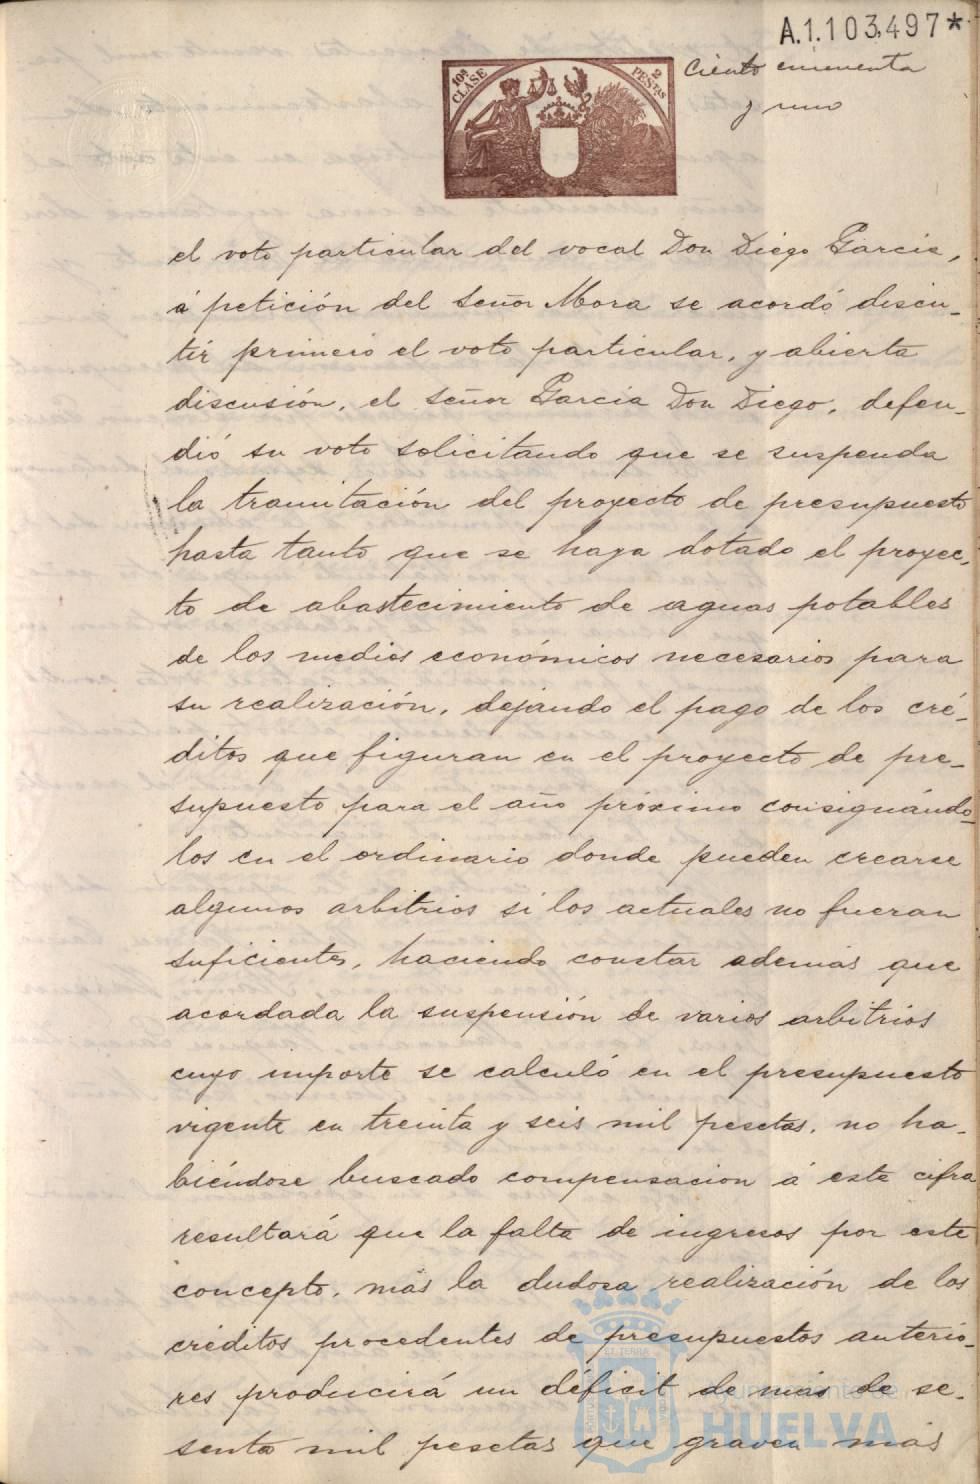 A.1.103.497*
10ª CLASE
2 PESTAS
Ciento cincuenta
y uno
el voto particular del vocal Don Diego Garcia,
á petición del Señor Mora se acordó discu-
tir primero el voto particular, y abierta
discusión, el Señor Garcia Don Diego, defen-
dió su voto solicitando que se suspenda
la tramitación del proyecto de presupuesto
hasta tanto que se haya dotado el proyec-
to de abastecimiento de aguas potables
de los medios económicos necesarios para
su realización, dejando el pago de los cré-
ditos que figuran en el proyecto de pre-
supuesto para el año próximo consignándo-
los en el ordinario donde pueden crearse
algunos arbitrios si los actuales no fueran
suficientes, haciendo constar además que
acordada la suspensión de varios arbitrios
cuyo importe se calculó en el presupuesto
vigente en treinta y seis mil pesetas, no ha-
biéndose buscado compensacion á esta cifra
resultará que la falta de ingresos por este
concepto, más la dudosa realización de los
créditos procedentes de presupuestos anterio-
res producirá un déficit de más de se-
senta mil pesetas que graven más
Ayuntamiento de
HUELVA